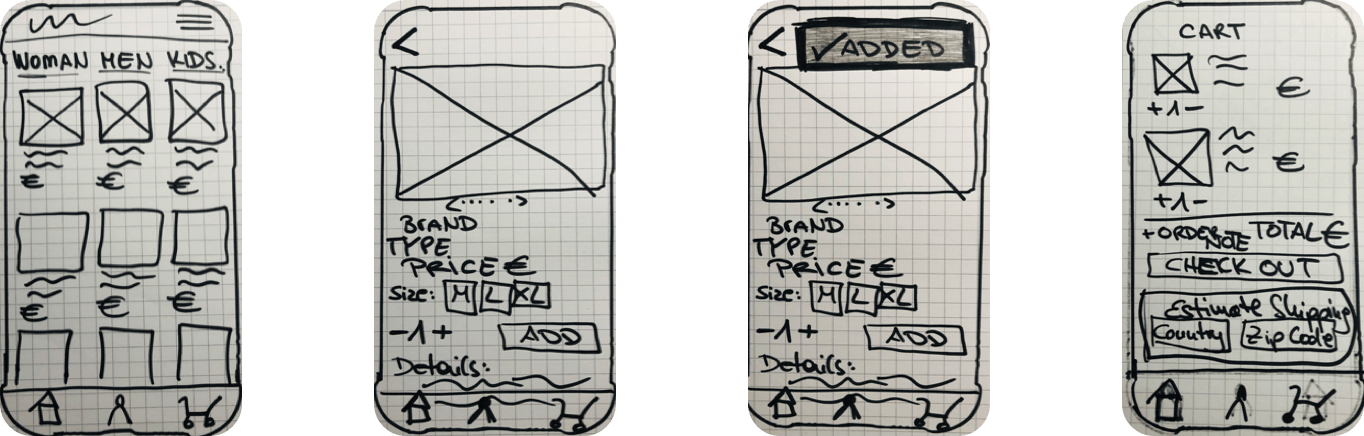 WOMAN MEN KIDS.
€ € €
€ € €
<
BRAND
TYPE
PRICE €
Size: M L XL
-1+ ADD
Details:
< ✓ADDED
BRAND
TYPE
PRICE €
Size: M L XL
-1+ ADD
Details:
CART
€
+1-
€
+1-
+ORDER NOTE TOTAL €
CHECK OUT
Estimate Shipping
Country Zip Code